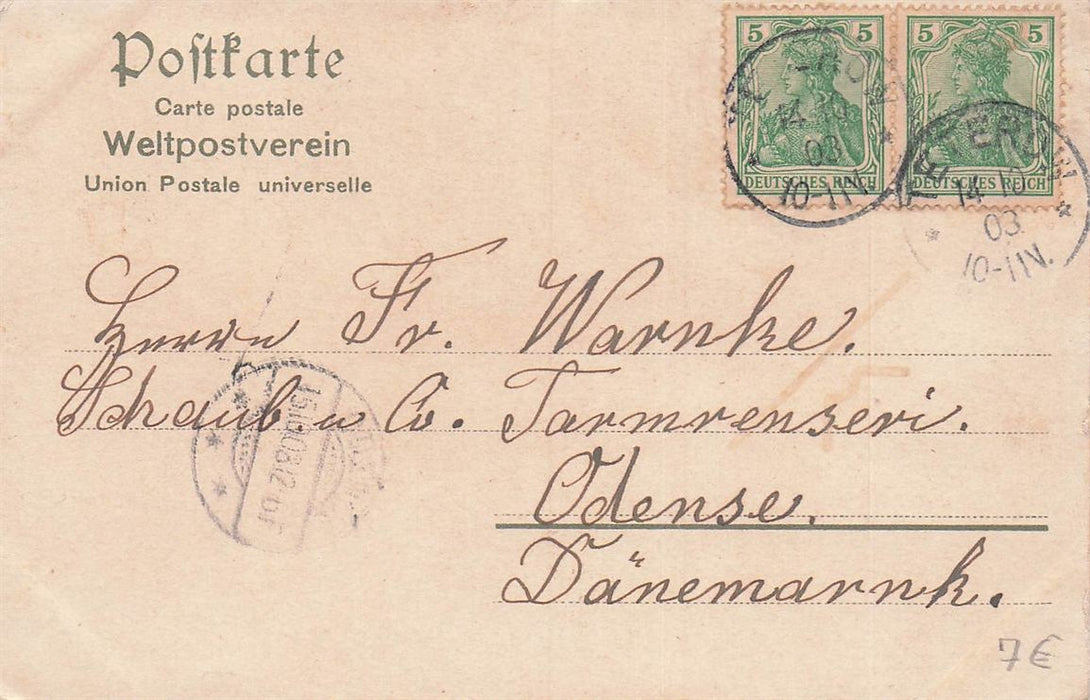 Postkarte
Carte postale
Weltpostverein
Union Postale universelle
5 5 5 5
DEUTSCHES REICH DEUTSCHES REICH
14 10
03
10-11N.
14 10
03
10-11N.
Herrn Fr. Warnke.
Schaub u Co. Tarmrenseri.
Odense.
Dänemarnk.
7€